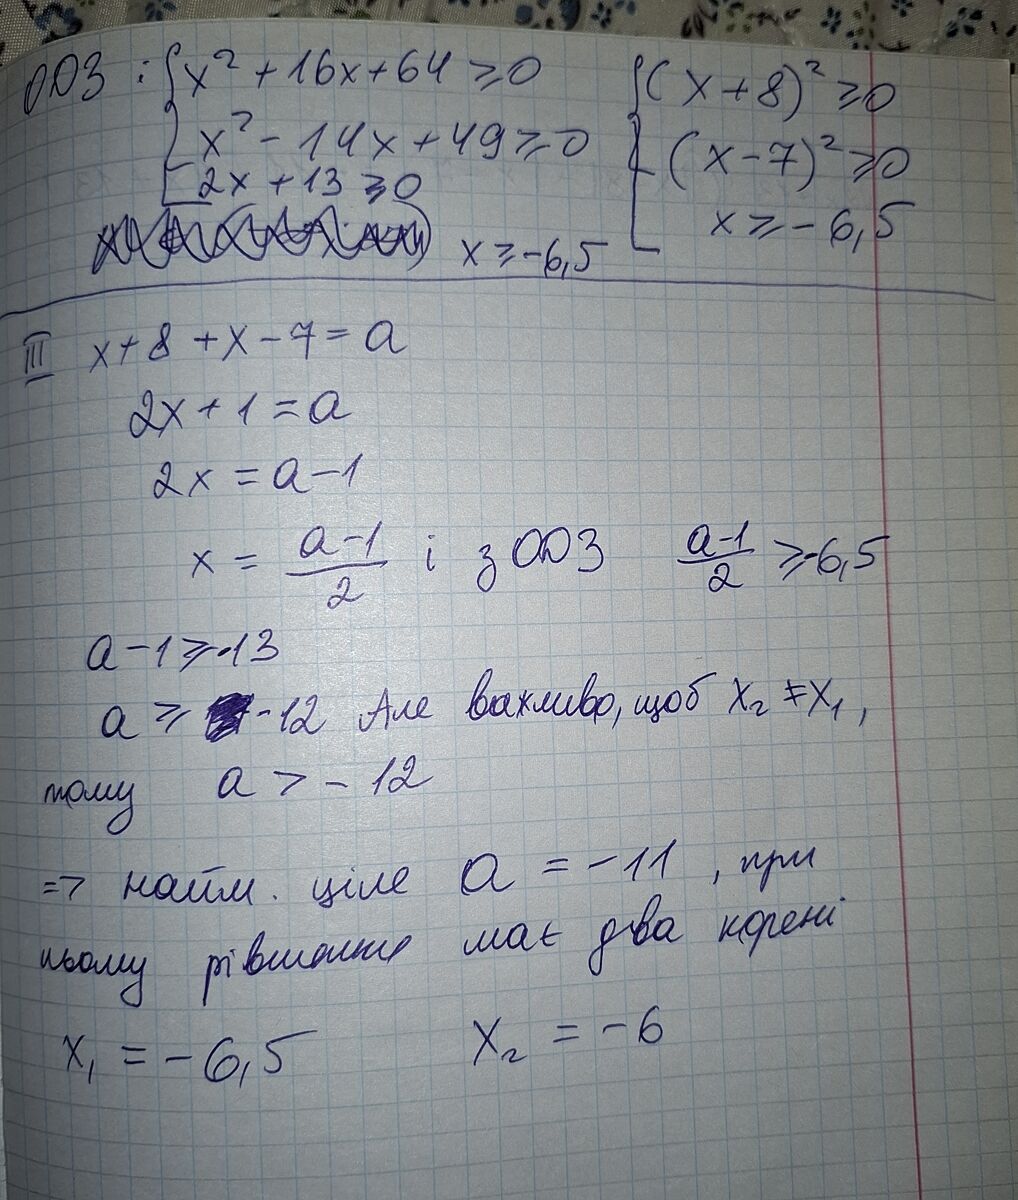 ОДЗ: { x² + 16x + 64 ⩾ 0 { (x + 8)² ⩾ 0
x² - 14x + 49 ⩾ 0 (x - 7)² ⩾ 0
2x + 13 ⩾ 0 x ⩾ - 6,5
x ⩾ -6,5
III x + 8 + x - 7 = a
2x + 1 = a
2x = a - 1
x = (a - 1)/2 і з ОДЗ (a-1)/2 ⩾ -6,5
a - 1 ⩾ -13
a ⩾ -12 Але важливо, щоб x₂ ≠ x₁,
тому a > - 12
=> найм. ціле a = -11, при
цьому рівняння має два корені
x₁ = - 6,5 x₂ = - 6